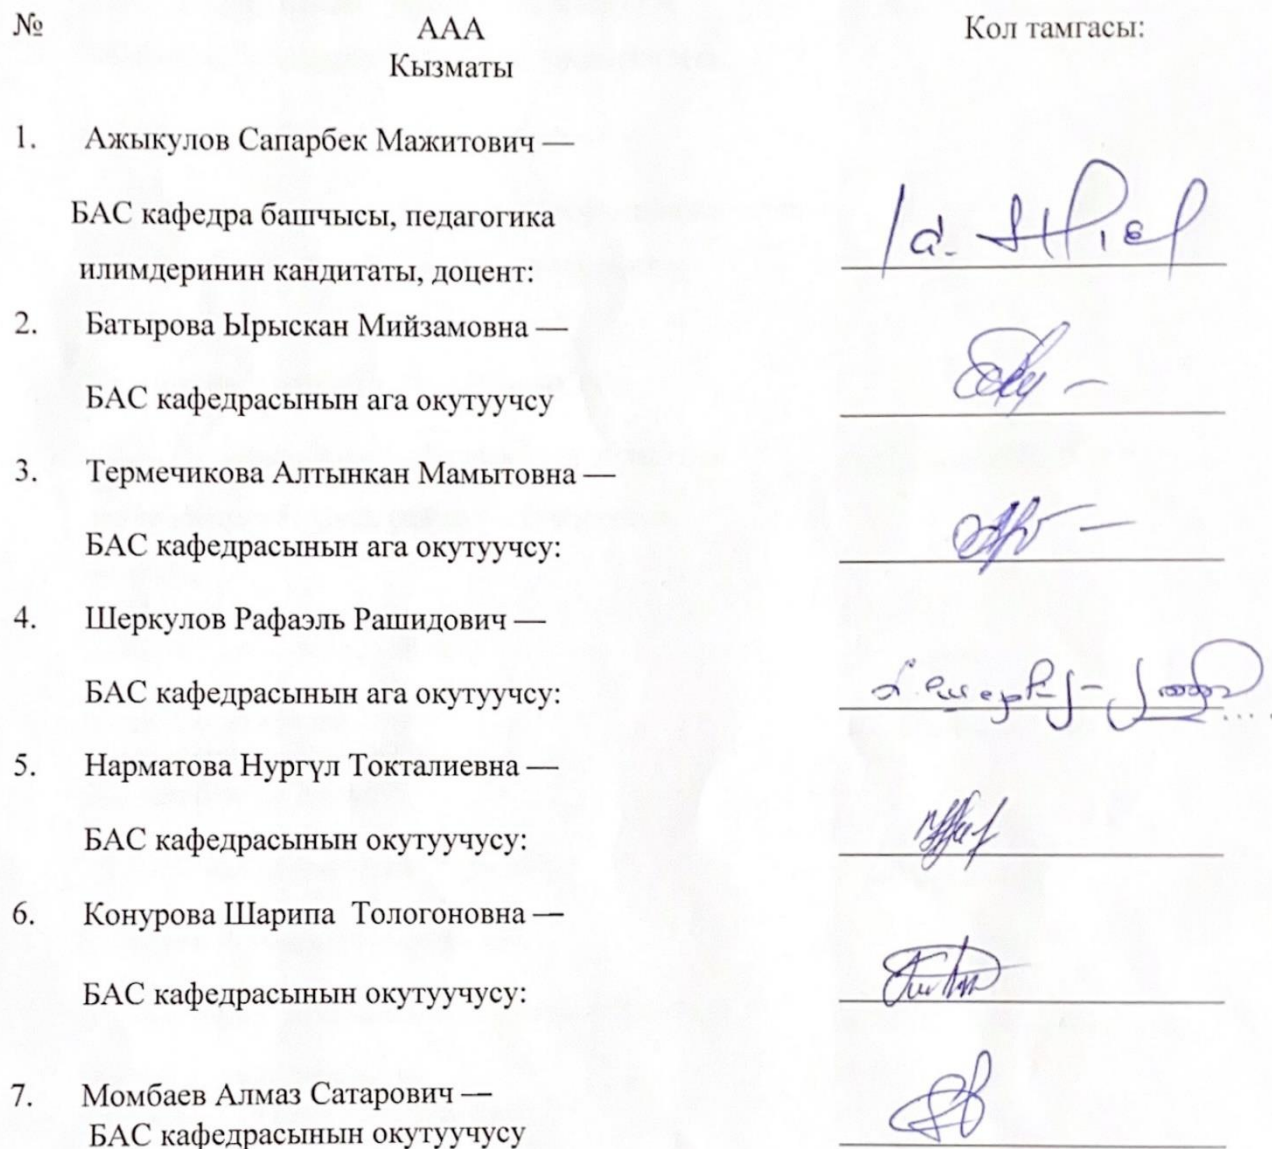 № ААА Кол тамгасы:
Кызматы
1. Ажыкулов Сапарбек Мажитович —
БАС кафедра башчысы, педагогика
илимдеринин кандитаты, доцент:
2. Батырова Ырыскан Мийзамовна —
БАС кафедрасынын ага окутуучсу
3. Термечикова Алтынкан Мамытовна —
БАС кафедрасынын ага окутуучсу:
4. Шеркулов Рафаэль Рашидович —
БАС кафедрасынын ага окутуучсу:
5. Нарматова Нургүл Токталиевна —
БАС кафедрасынын окутуучусу:
6. Конурова Шарипа Тологоновна —
БАС кафедрасынын окутуучусу:
7. Момбаев Алмаз Сатарович —
БАС кафедрасынын окутуучусу